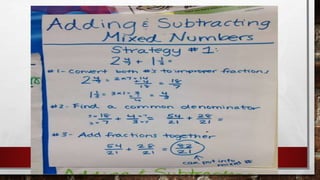 Adding & Subtracting
Mixed Numbers
Strategy #1:
2 4/7 + 1 1/3 =
#1- Convert both #'s to improper fractions
2 4/7 = 2×7=14+4 = 18/7
1 1/3 = 3×1=3+1 = 4/3
#2- Find a common denominator
3×18/3×7 + 4×7/3×7 54/21 + 28/21 =
#3- Add fractions together
54/21 + 28/21 = 82/21
can put into
mixed #
Adding & Subtra